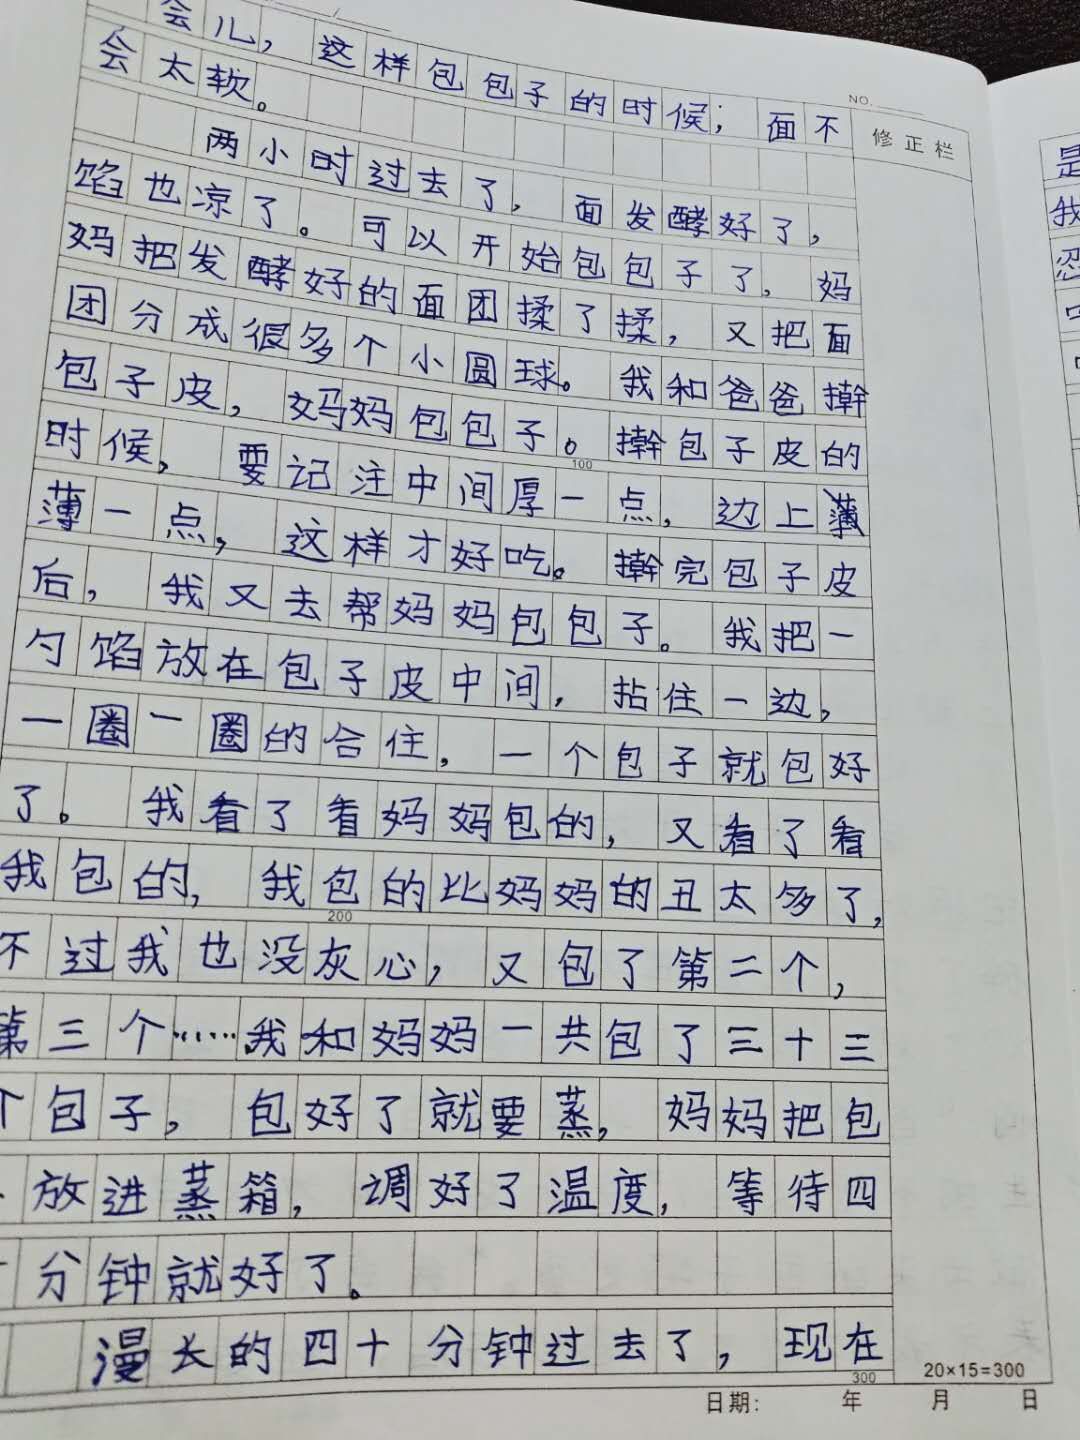 会儿，这样包包子的时候；面不
NO.
会太软。
修正栏
两小时过去了，面发酵好了，
馅也凉了。可以开始包包子了，妈
妈把发酵好的面团揉了揉，又把面
团分成很多个小圆球。我和爸爸擀
包子皮，妈妈包包子。擀包子皮的
100
时候，要记注中间厚一点，边上
薄一点，这样才好吃。擀完包子皮
后，我又去帮妈妈包包子。我把一
勺馅放在包子皮中间，拈住一边，
一圈一圈的合住，一个包子就包好
了。我看了看妈妈包的，又看了看
我包的，我包的比妈妈的丑太多了，
200
不过我也没灰心，又包了第二个，
第三个……我和妈妈一共包了三十三
个包子，包好了就要蒸，妈妈把包
放进蒸箱，调好了温度，等待四
分钟就好了。
漫长的四十分钟过去了，现在
300
20×15=300
日期： 年 月 日
是
我
忍